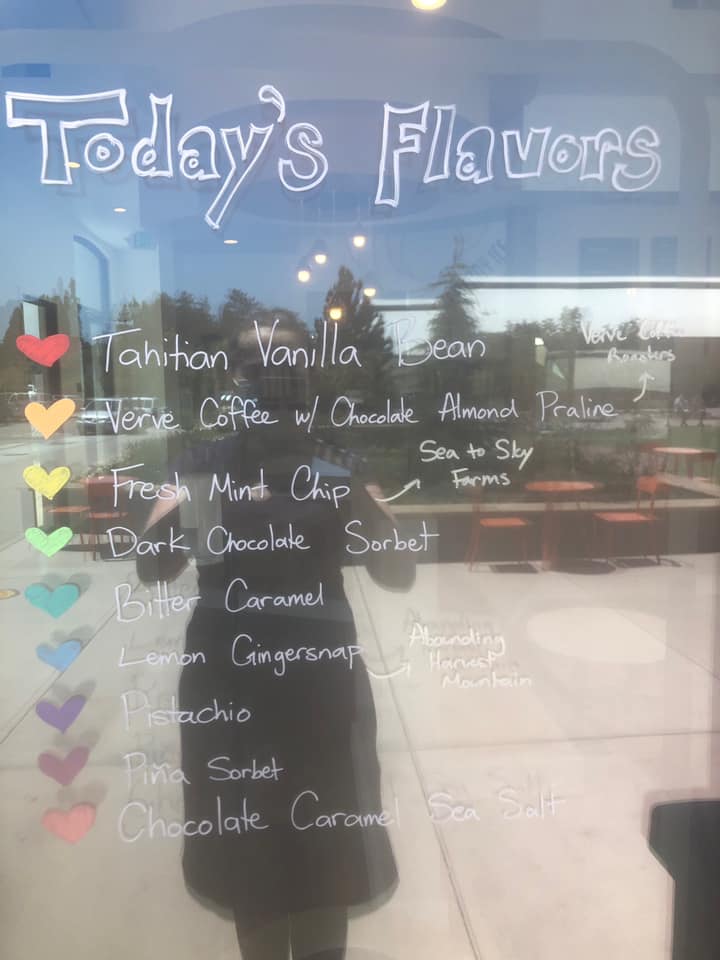 Today's Flavors
Tahitian Vanilla Bean
Verve Coffee
Roasters
Verve Coffee w/ Chocolate Almond Praline
Sea to Sky
Farms
Fresh Mint Chip
Dark Chocolate Sorbet
Bitter Caramel
Lemon Gingersnap
Abounding
Harvest
Mountain
Pistachio
Piña Sorbet
Chocolate Caramel Sea Salt